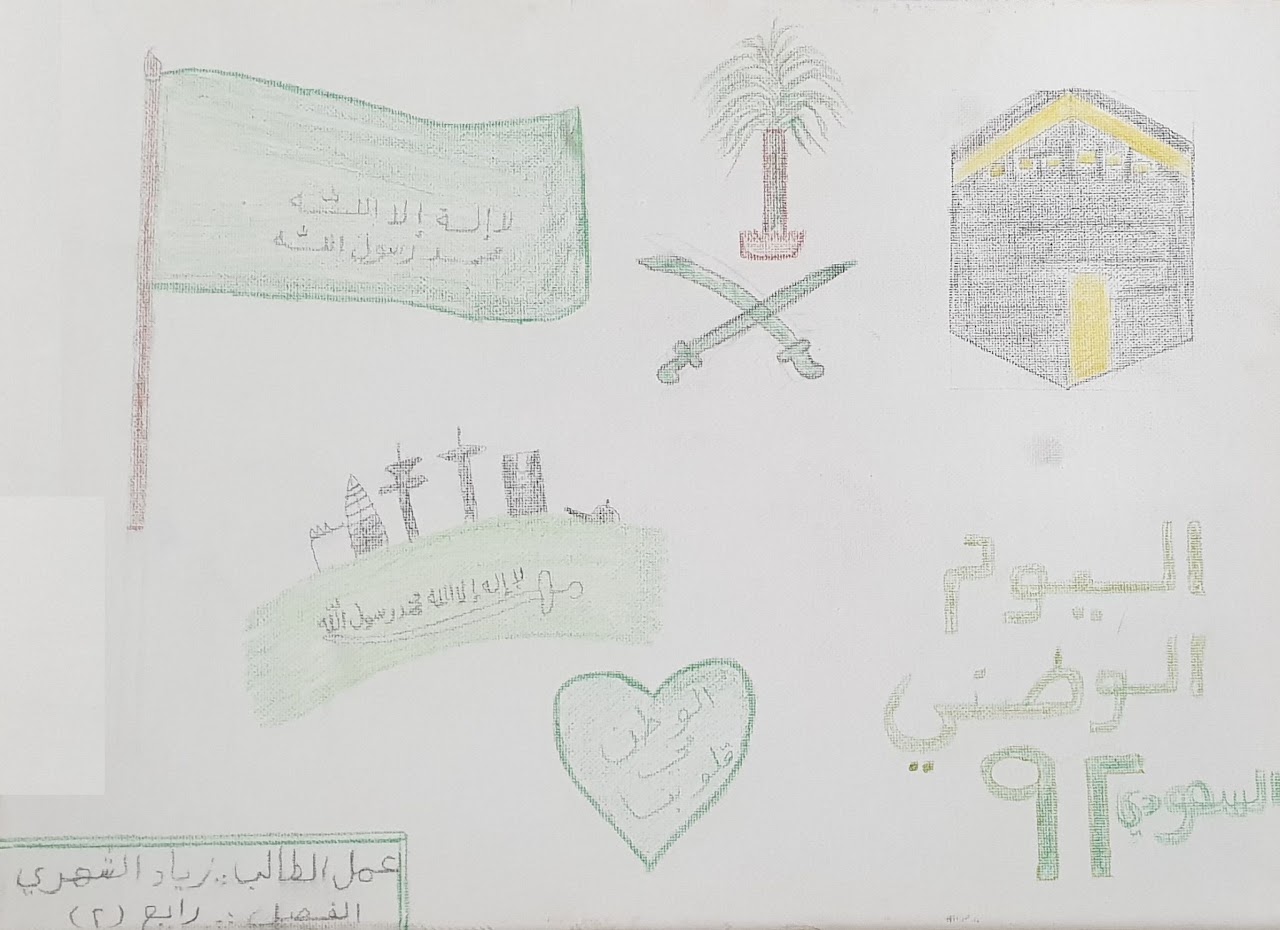 لا إلـه إلا اللـه
محمد رسول الله
لا إله إلا الله محمد رسول الله
اليوم
الوطني
السعودي ٩٢
الوطن
في
قلب
عمل الطالب .. زياد الشهري
الفصل .. رابع (٢)